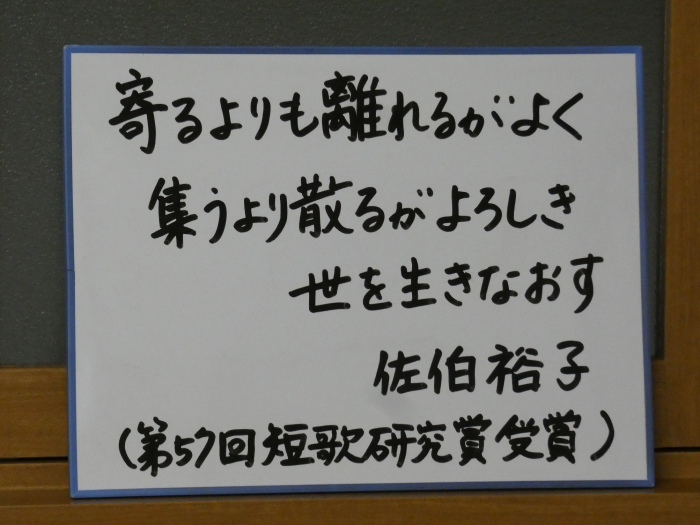 寄るよりも離れるがよく
集うより散るがよろしき
世を生きなおす
佐伯裕子
(第57回短歌研究賞受賞)